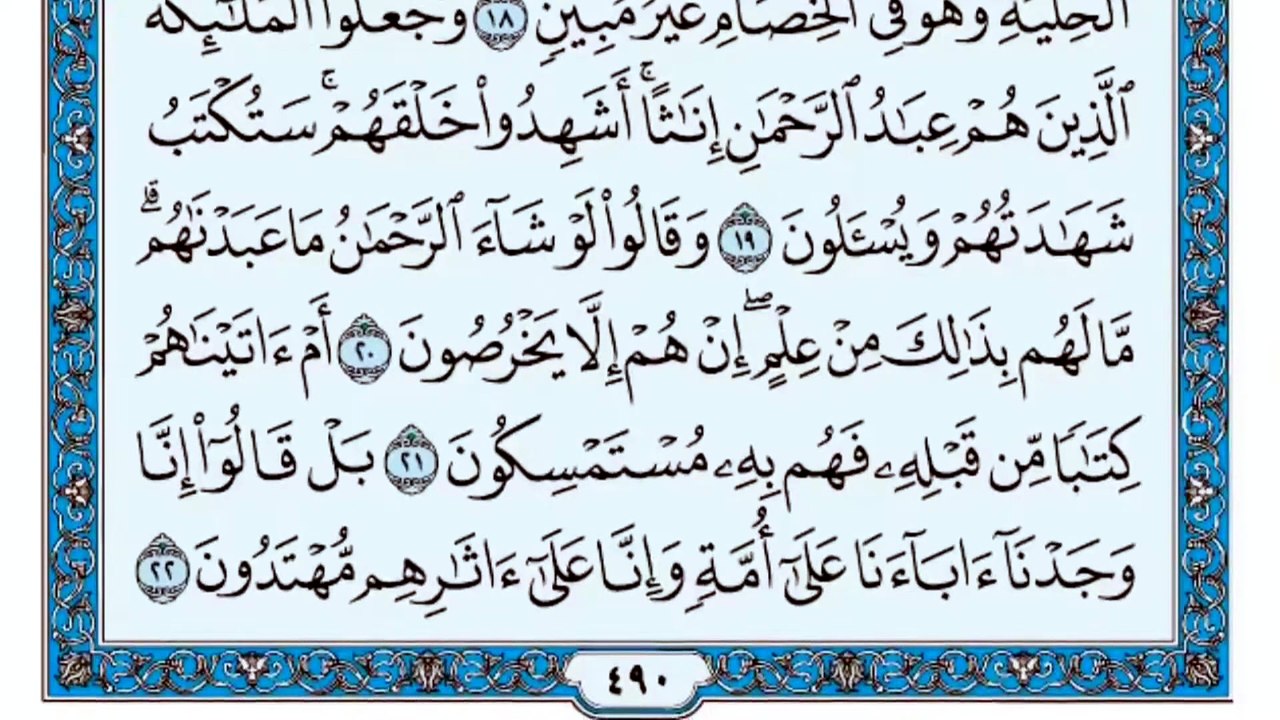 ٱلۡحِلۡيَةِ وَهُوَ فِي ٱلۡخِصَامِ غَيۡرُ مُبِينٖ ١٨ وَجَعَلُواْ ٱلۡمَلَٰٓئِكَةَ
ٱلَّذِينَ هُمۡ عِبَٰدُ ٱلرَّحۡمَٰنِ إِنَٰثًاۚ أَشَهِدُواْ خَلۡقَهُمۡۚ سَتُكۡتَبُ
شَهَٰدَتُهُمۡ وَيُسۡـَٔلُونَ ١٩ وَقَالُواْ لَوۡ شَآءَ ٱلرَّحۡمَٰنُ مَا عَبَدۡنَٰهُمۗ
مَّا لَهُم بِذَٰلِكَ مِنۡ عِلۡمٍۖ إِنۡ هُمۡ إِلَّا يَخۡرُصُونَ ٢٠ أَمۡ ءَاتَيۡنَٰهُمۡ
كِتَٰبٗا مِّن قَبۡلِهِۦ فَهُم بِهِۦ مُسۡتَمۡسِكُونَ ٢١ بَلۡ قَالُوٓاْ إِنَّا
وَجَدۡنَآ ءَابَآءَنَا عَلَىٰٓ أُمَّةٖ وَإِنَّا عَلَىٰٓ ءَاثَٰرِهِم مُّهۡتَدُونَ ٢٢
٤٩٠